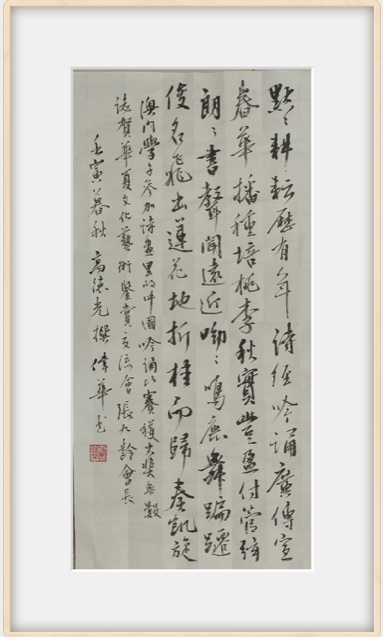 默々耕耘歷有年詩經吟誦廣傳宣
春華播種培桃李秋實豐盈付管絃
朗々書聲聞遠近呦々鳴鹿舞蹁躚
俊名飛出蓮花地折桂而歸奏凱旋
澳門學子參加詩畫里的中國吟誦比賽獲大獎無數
誌賀華夏文化藝術鑒賞交流會張九齡會長
壬寅暮秋 高德光撰 偉華書